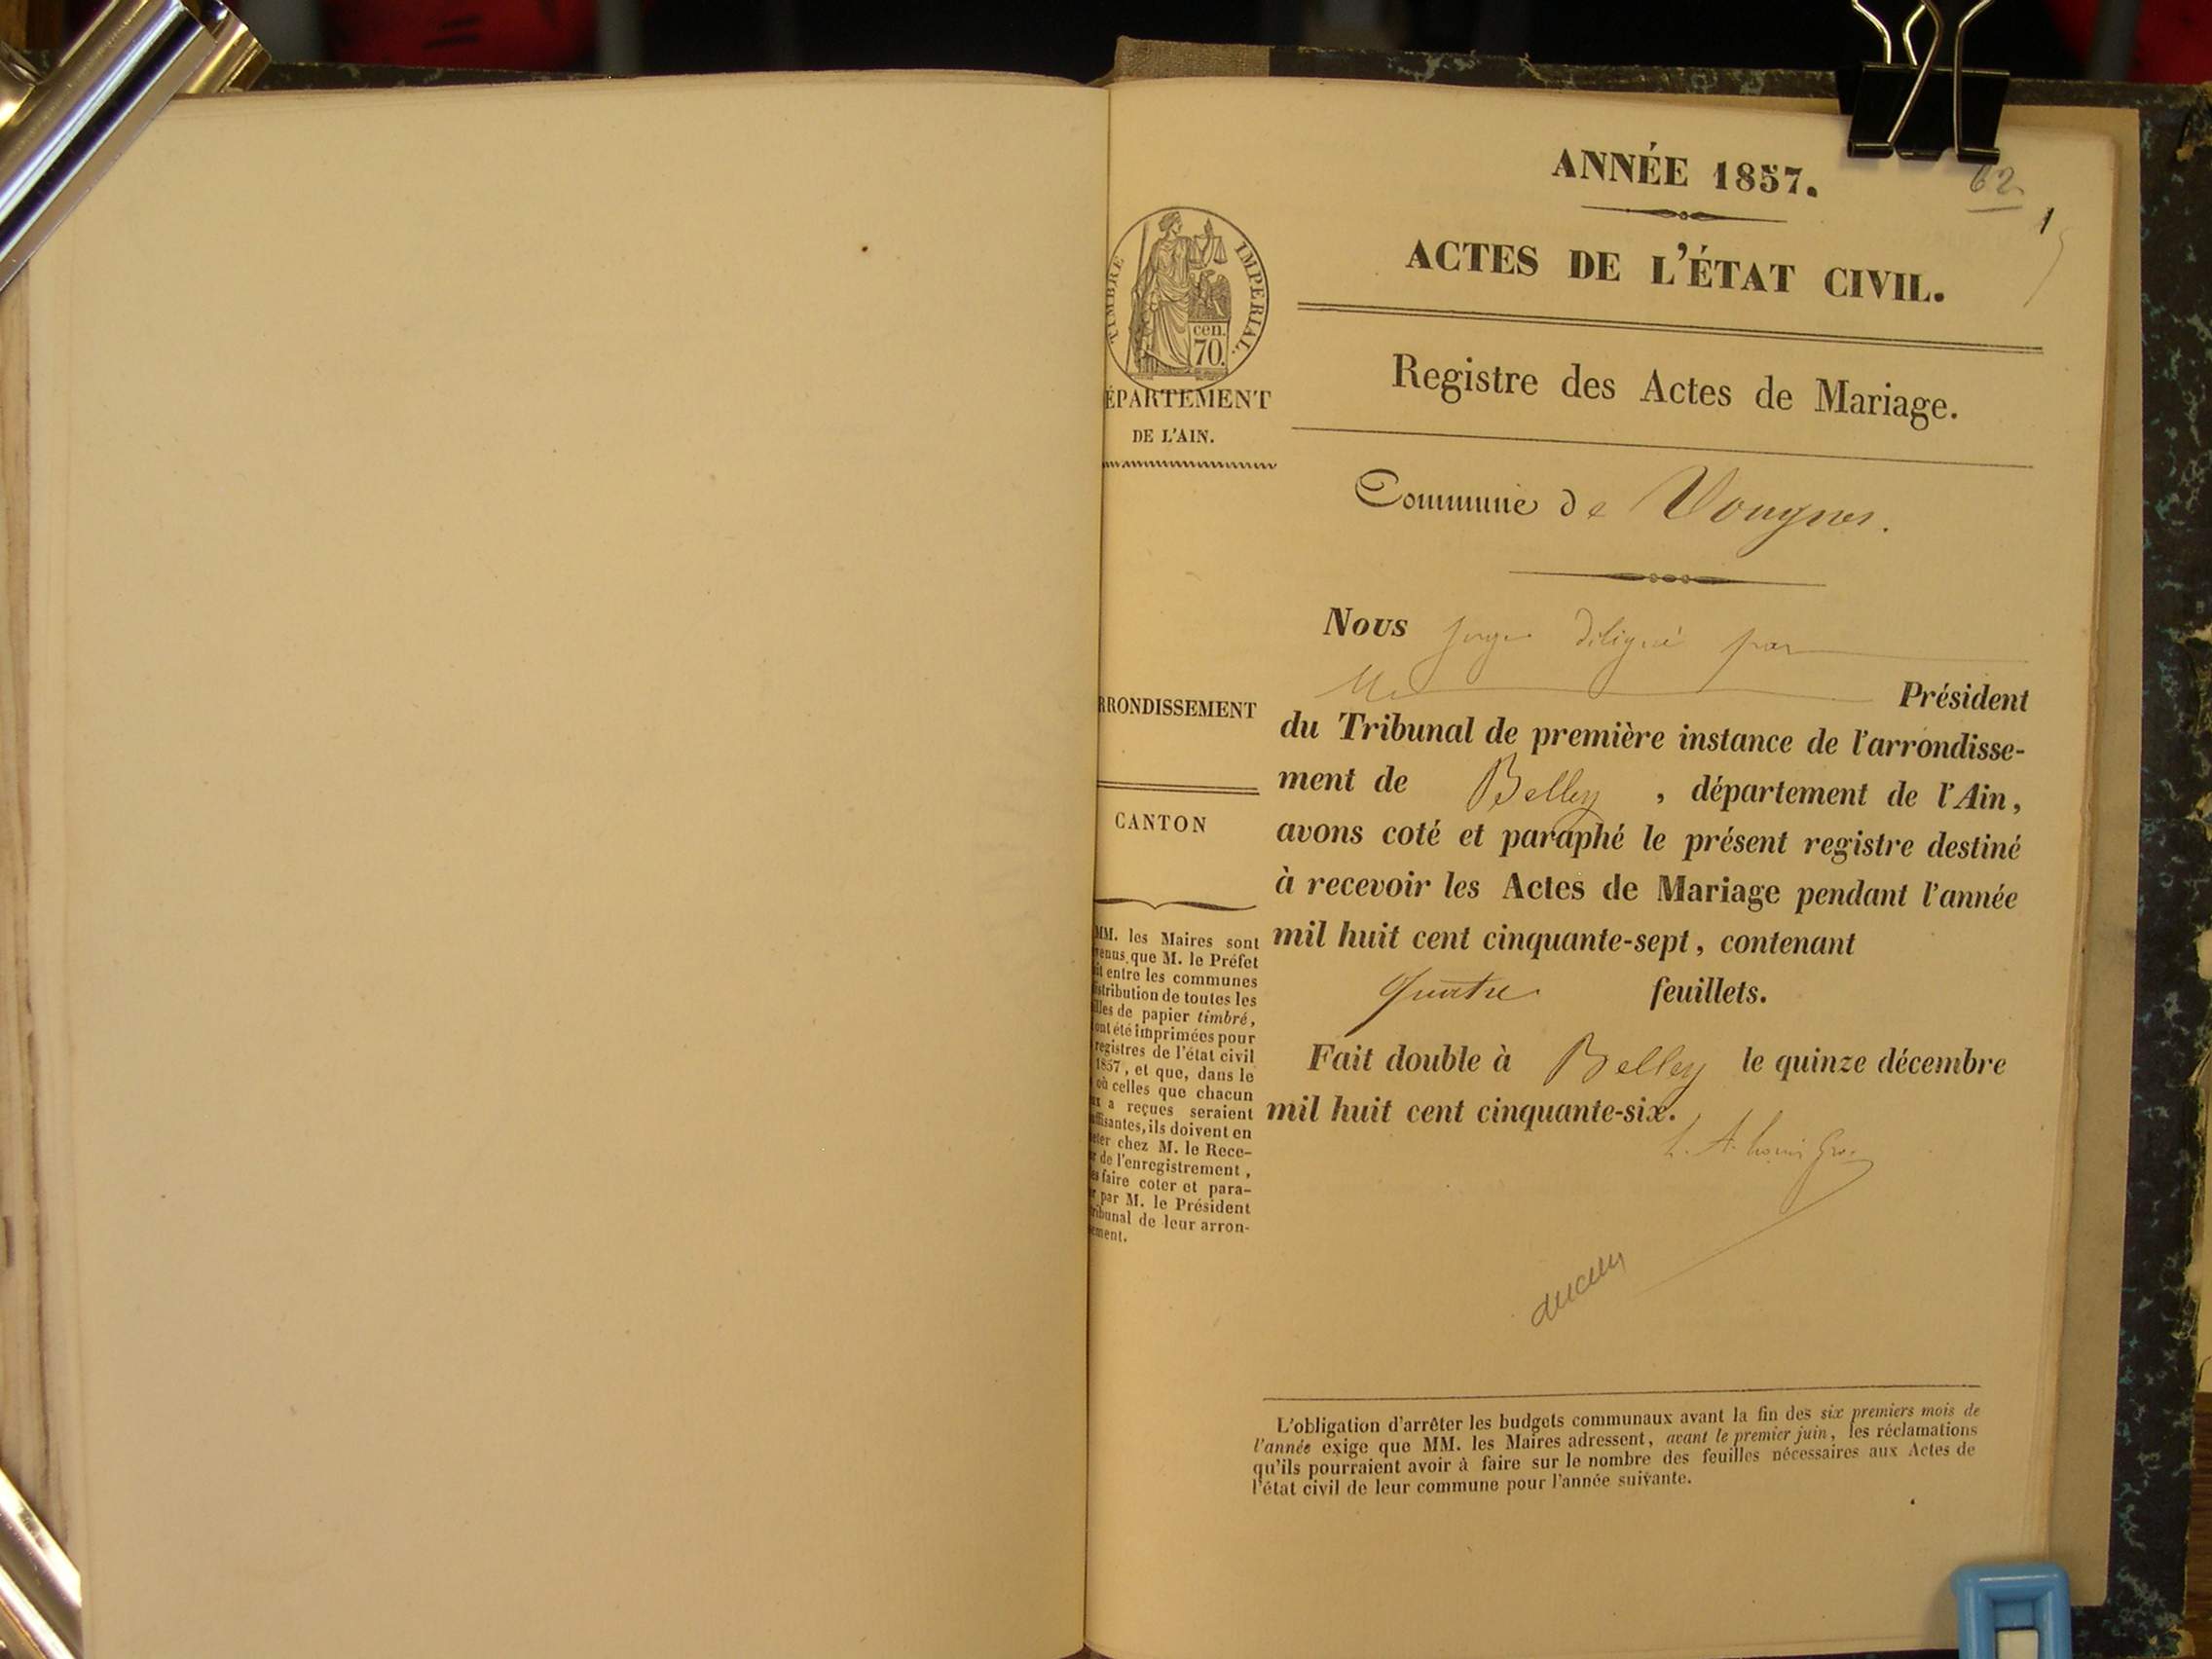 ANNÉE 1857.
62
1
ACTES DE L'ÉTAT CIVIL.
TIMBRE IMPERIAL.
cen.
70.
ÉPARTEMENT
DE L'AIN.
Registre des Actes de Mariage.
Commune de Vougnes.
Nous juge délégué par
Mr Président
RRONDISSEMENT
du Tribunal de première instance de l'arrondisse-
ment de Belley , département de l'Ain,
CANTON
avons coté et paraphé le présent registre destiné
à recevoir les Actes de Mariage pendant l'année
mil huit cent cinquante-sept, contenant
quatre feuillets.
Fait double à Belley le quinze décembre
mil huit cent cinquante-six.
MM. les Maires sont
venus que M. le Préfet
it entre les communes
istribution de toutes les
illes de papier timbré,
ont été imprimées pour
registres de l'état civil
1857, et que, dans le
où celles que chacun
ux a reçues seraient
uffisantes, ils doivent en
eter chez M. le Rece-
r de l'enregistrement,
es faire coter et para-
r par M. le Président
ribunal de leur arron-
ement.
L'obligation d'arrêter les budgets communaux avant la fin des six premiers mois de
l'année exige que MM. les Maires adressent, avant le premier juin, les réclamations
qu'ils pourraient avoir à faire sur le nombre des feuilles nécessaires aux Actes de
l'état civil de leur commune pour l'année suivante.